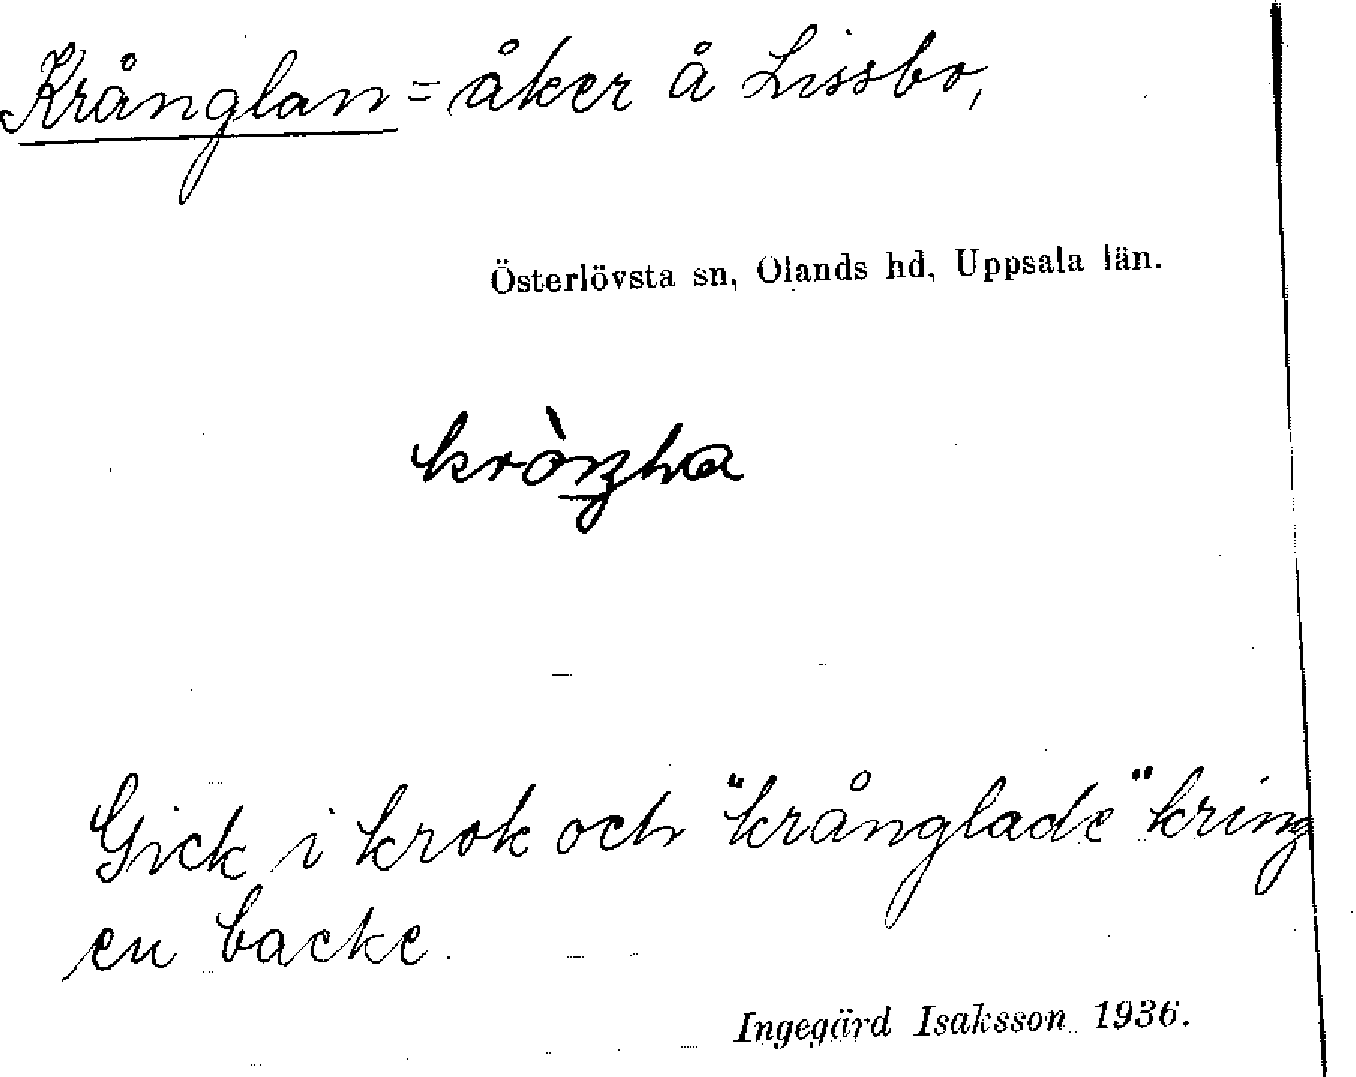 Krånglan = åker å Lissbo,
Österlövsta sn, Olands hd, Uppsala län.
Gick i krok och "krånglade" kring
en backe.
Ingegärd Isaksson 1936.